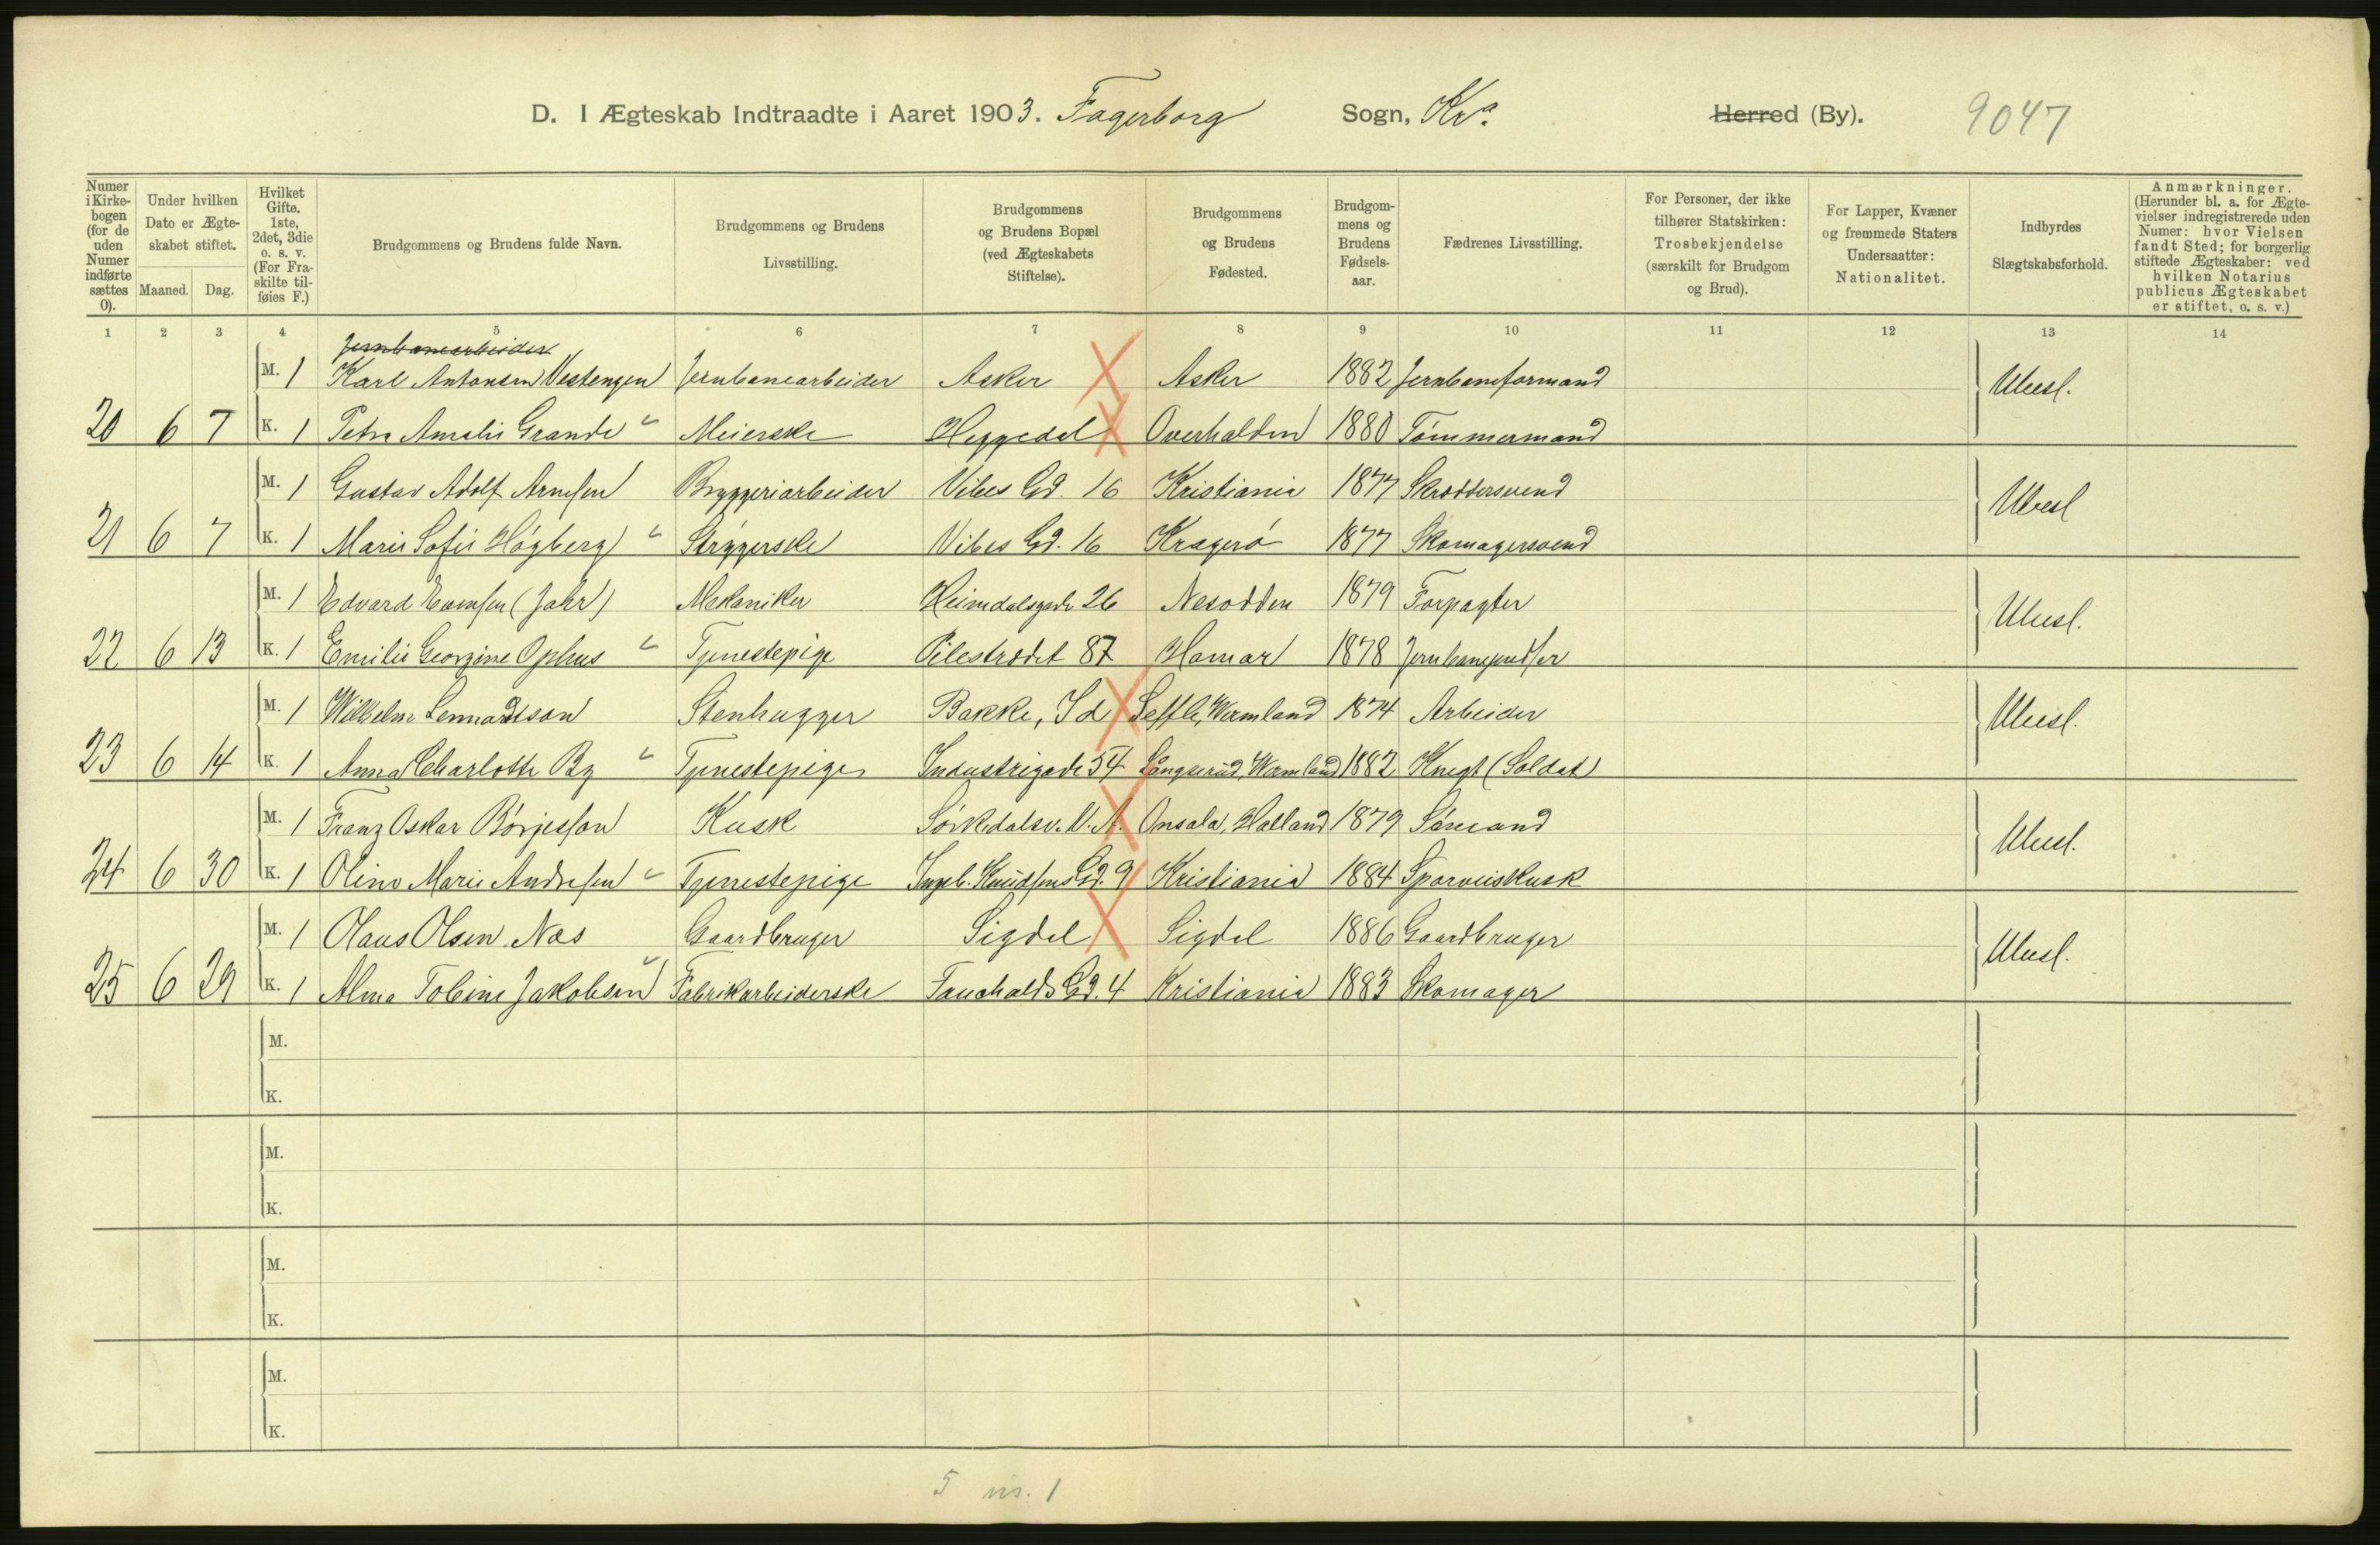 D. I Ægteskab Indtraadte i Aaret 1903. Fagerborg Sogn, Kra. Herred (By). 9047
Numer i Kirkebogen (for de uden Numer indførte sættes 0). Under hvilken Dato er Ægteskabet stiftet. Maaned. Dag. Hvilket Gifte. 1ste, 2det, 3die o. s. v. (For Fraskilte tilføies F.) Brudgommens og Brudens fulde Navn. Brudgommens og Brudens Livsstilling. Brudgommens og Brudens Bopæl (ved Ægteskabets Stiftelse). Brudgommens og Brudens Fødested. Brudgommens og Brudens Fødselsaar. Fædrenes Livsstilling. For Personer, der ikke tilhører Statskirken: Trosbekjendelse (særskilt for Brudgom og Brud). For Lapper, Kvæner og fremmede Staters Undersaatter: Nationalitet. Indbyrdes Slægtskabsforhold. Anmærkninger. (Herunder bl. a. for Ægtevielser indregistrerede uden Numer: hvor Vielsen fandt Sted; for borgerlig stiftede Ægteskaber: ved hvilken Notarius publicus Ægteskabet er stiftet, o. s. v.)
1 2 3 4 5 6 7 8 9 10 11 12 13 14
Jernbanearbeider
M. 1 Karl Antonsen Vestengen Jernbanearbeider Asker Asker 1882 Jernbaneformand Ubesl.
20 6 7 K. 1 Petra Amalie Grande Meierske Heggedal Overhalden 1880 Tømmermand
M. 1 Gustav Adolf Arnesen Bryggeriarbeider Vibes Gd. 16 Kristiania 1877 Skræddersvend Ubesl
21 6 7 K. 1 Marie Sofie Høgberg Strygerske Vibes Gd. 16 Kragerø 1877 Skomagersvend
M. 1 Edvard Evensen (Jahr) Mekaniker Heimdalsgade 26 Nesodden 1879 Forpagter Ubesl.
22 6 13 K. 1 Emilie Georgine Ophus Tjenestepige Pilestrædet 87 Hamar 1878
M. 1 Wilhelm Lennartson Stenhugger Bakke, Id Seffle, Wermland 1874 Arbeider Ubesl.
23 6 14 K. 1 Anna Charlotte By Tjenestepige Industrigade 54 Långserud, Wermland 1882 Knegt (Soldat)
M. 1 Franz Oskar Börjesson Kusk Sørkedalsv. V. A. Onsala, Halland 1879 Sømand Ubesl.
24 6 30 K. 1 Oline Marie Andresen Tjenestepige Ingeb. Knudsens Gd. 9 Kristiania 1884 Sporveiskusk
M. 1 Olaus Olsen Næs Gaardbruger Sigdal Sigdal 1886 Gaardbruger Ubesl.
25 6 29 K. 1 Alma Tobine Jakobsen Fabrikarbeiderske Fauchalds Gd. 4 Kristiania 1883 Skomager
M.
K.
M.
K.
M.
K.
M.
K.
5 1